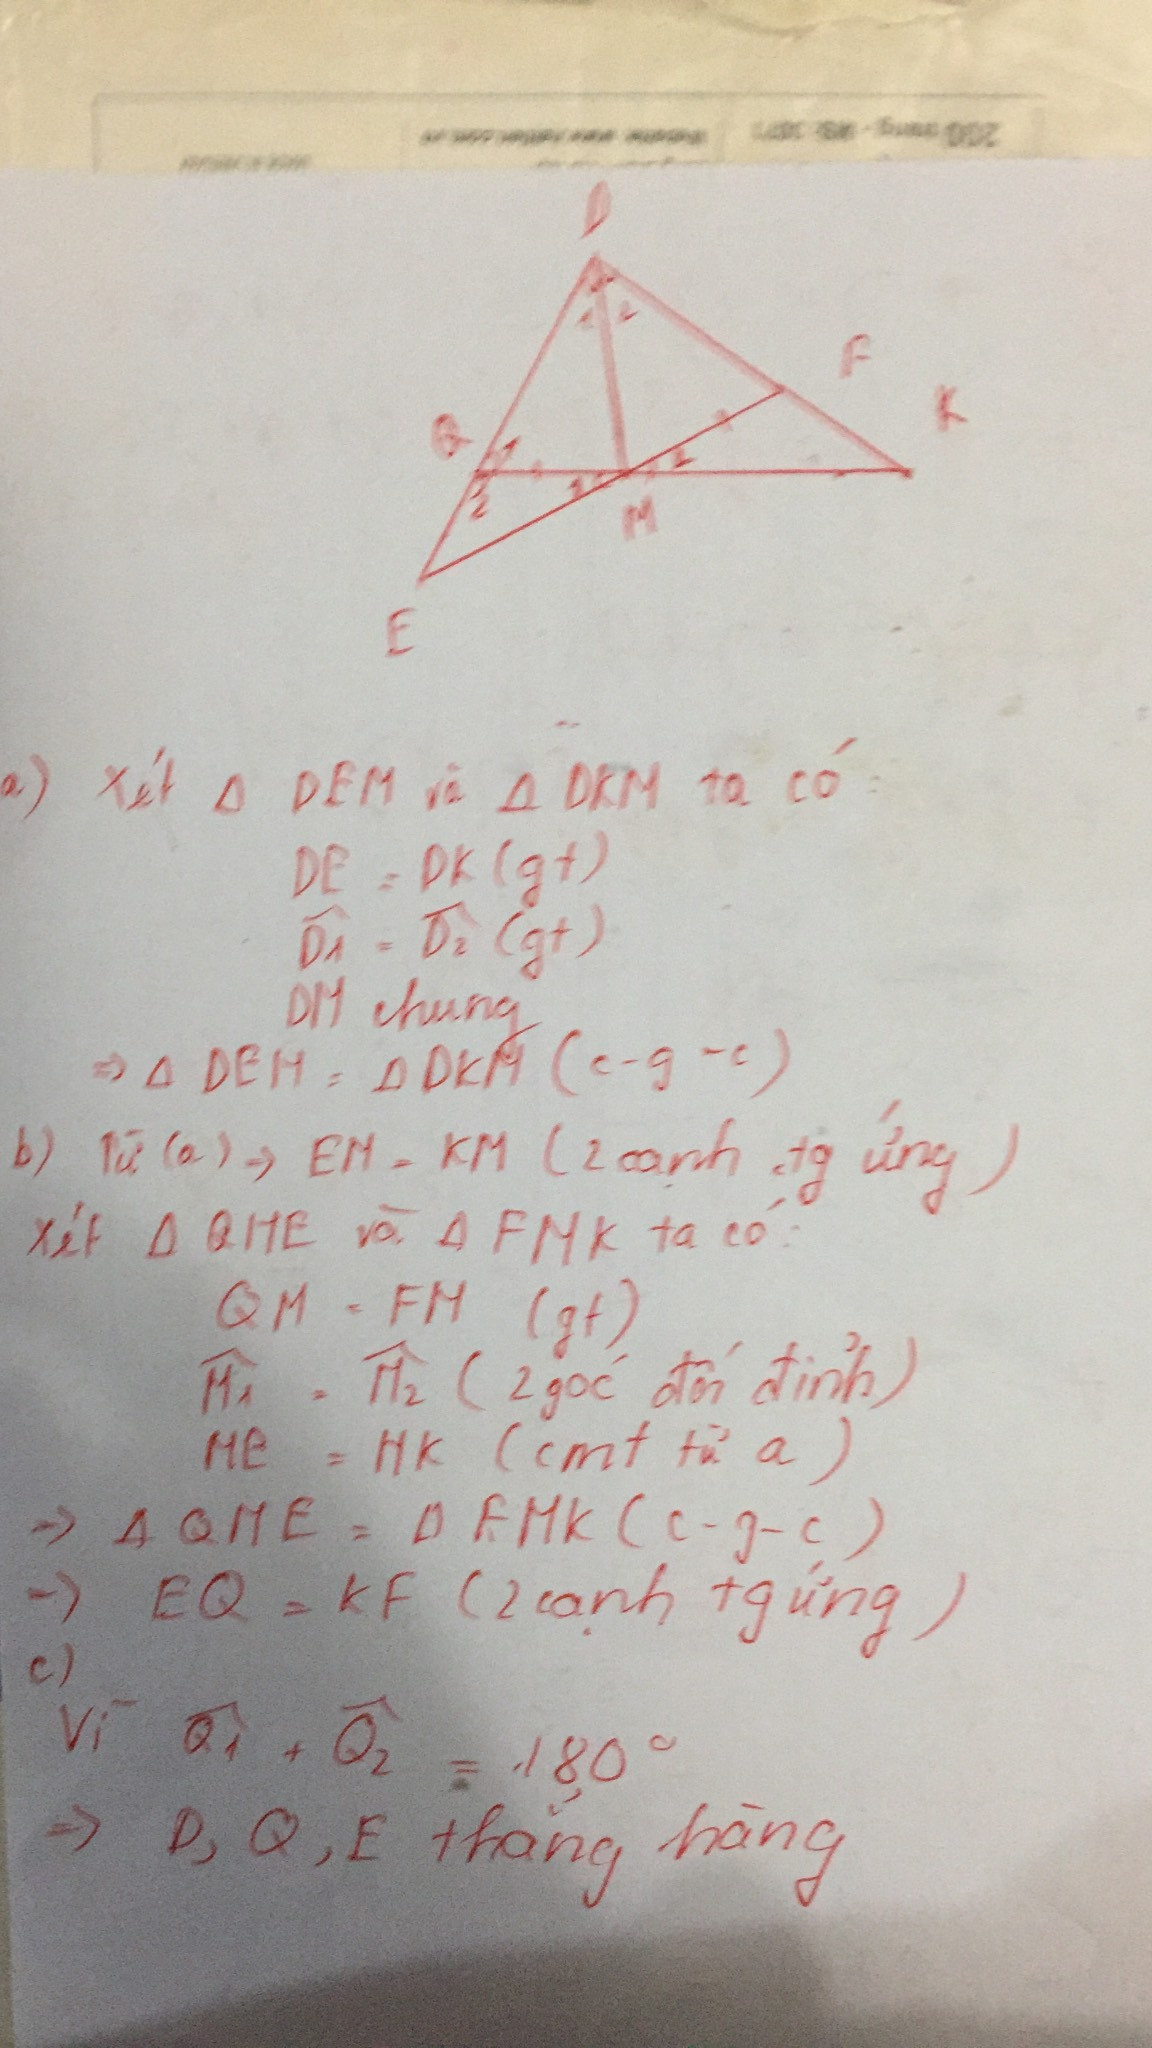 200 trang - MS: 3071
D
1 2
F
K
Q 1
2
1
2
M
E
a) Xét Δ DEM và Δ DKM ta có:
DE = DK (gt)
D̂1 = D̂2 (gt)
DM chung
=> Δ DEM = Δ DKM (c-g-c)
b) Từ (a) => EM = KM (2 cạnh tg ứng)
Xét Δ QME và Δ FMK ta có:
QM = FM (gt)
M̂1 = M̂2 (2 góc đối đỉnh)
ME = MK (cmt từ a)
=> Δ QME = Δ FMK (c-g-c)
=> EQ = KF (2 cạnh tg ứng)
c)
Vì Q̂1 + Q̂2 = 180°
=> D, Q, E thẳng hàng